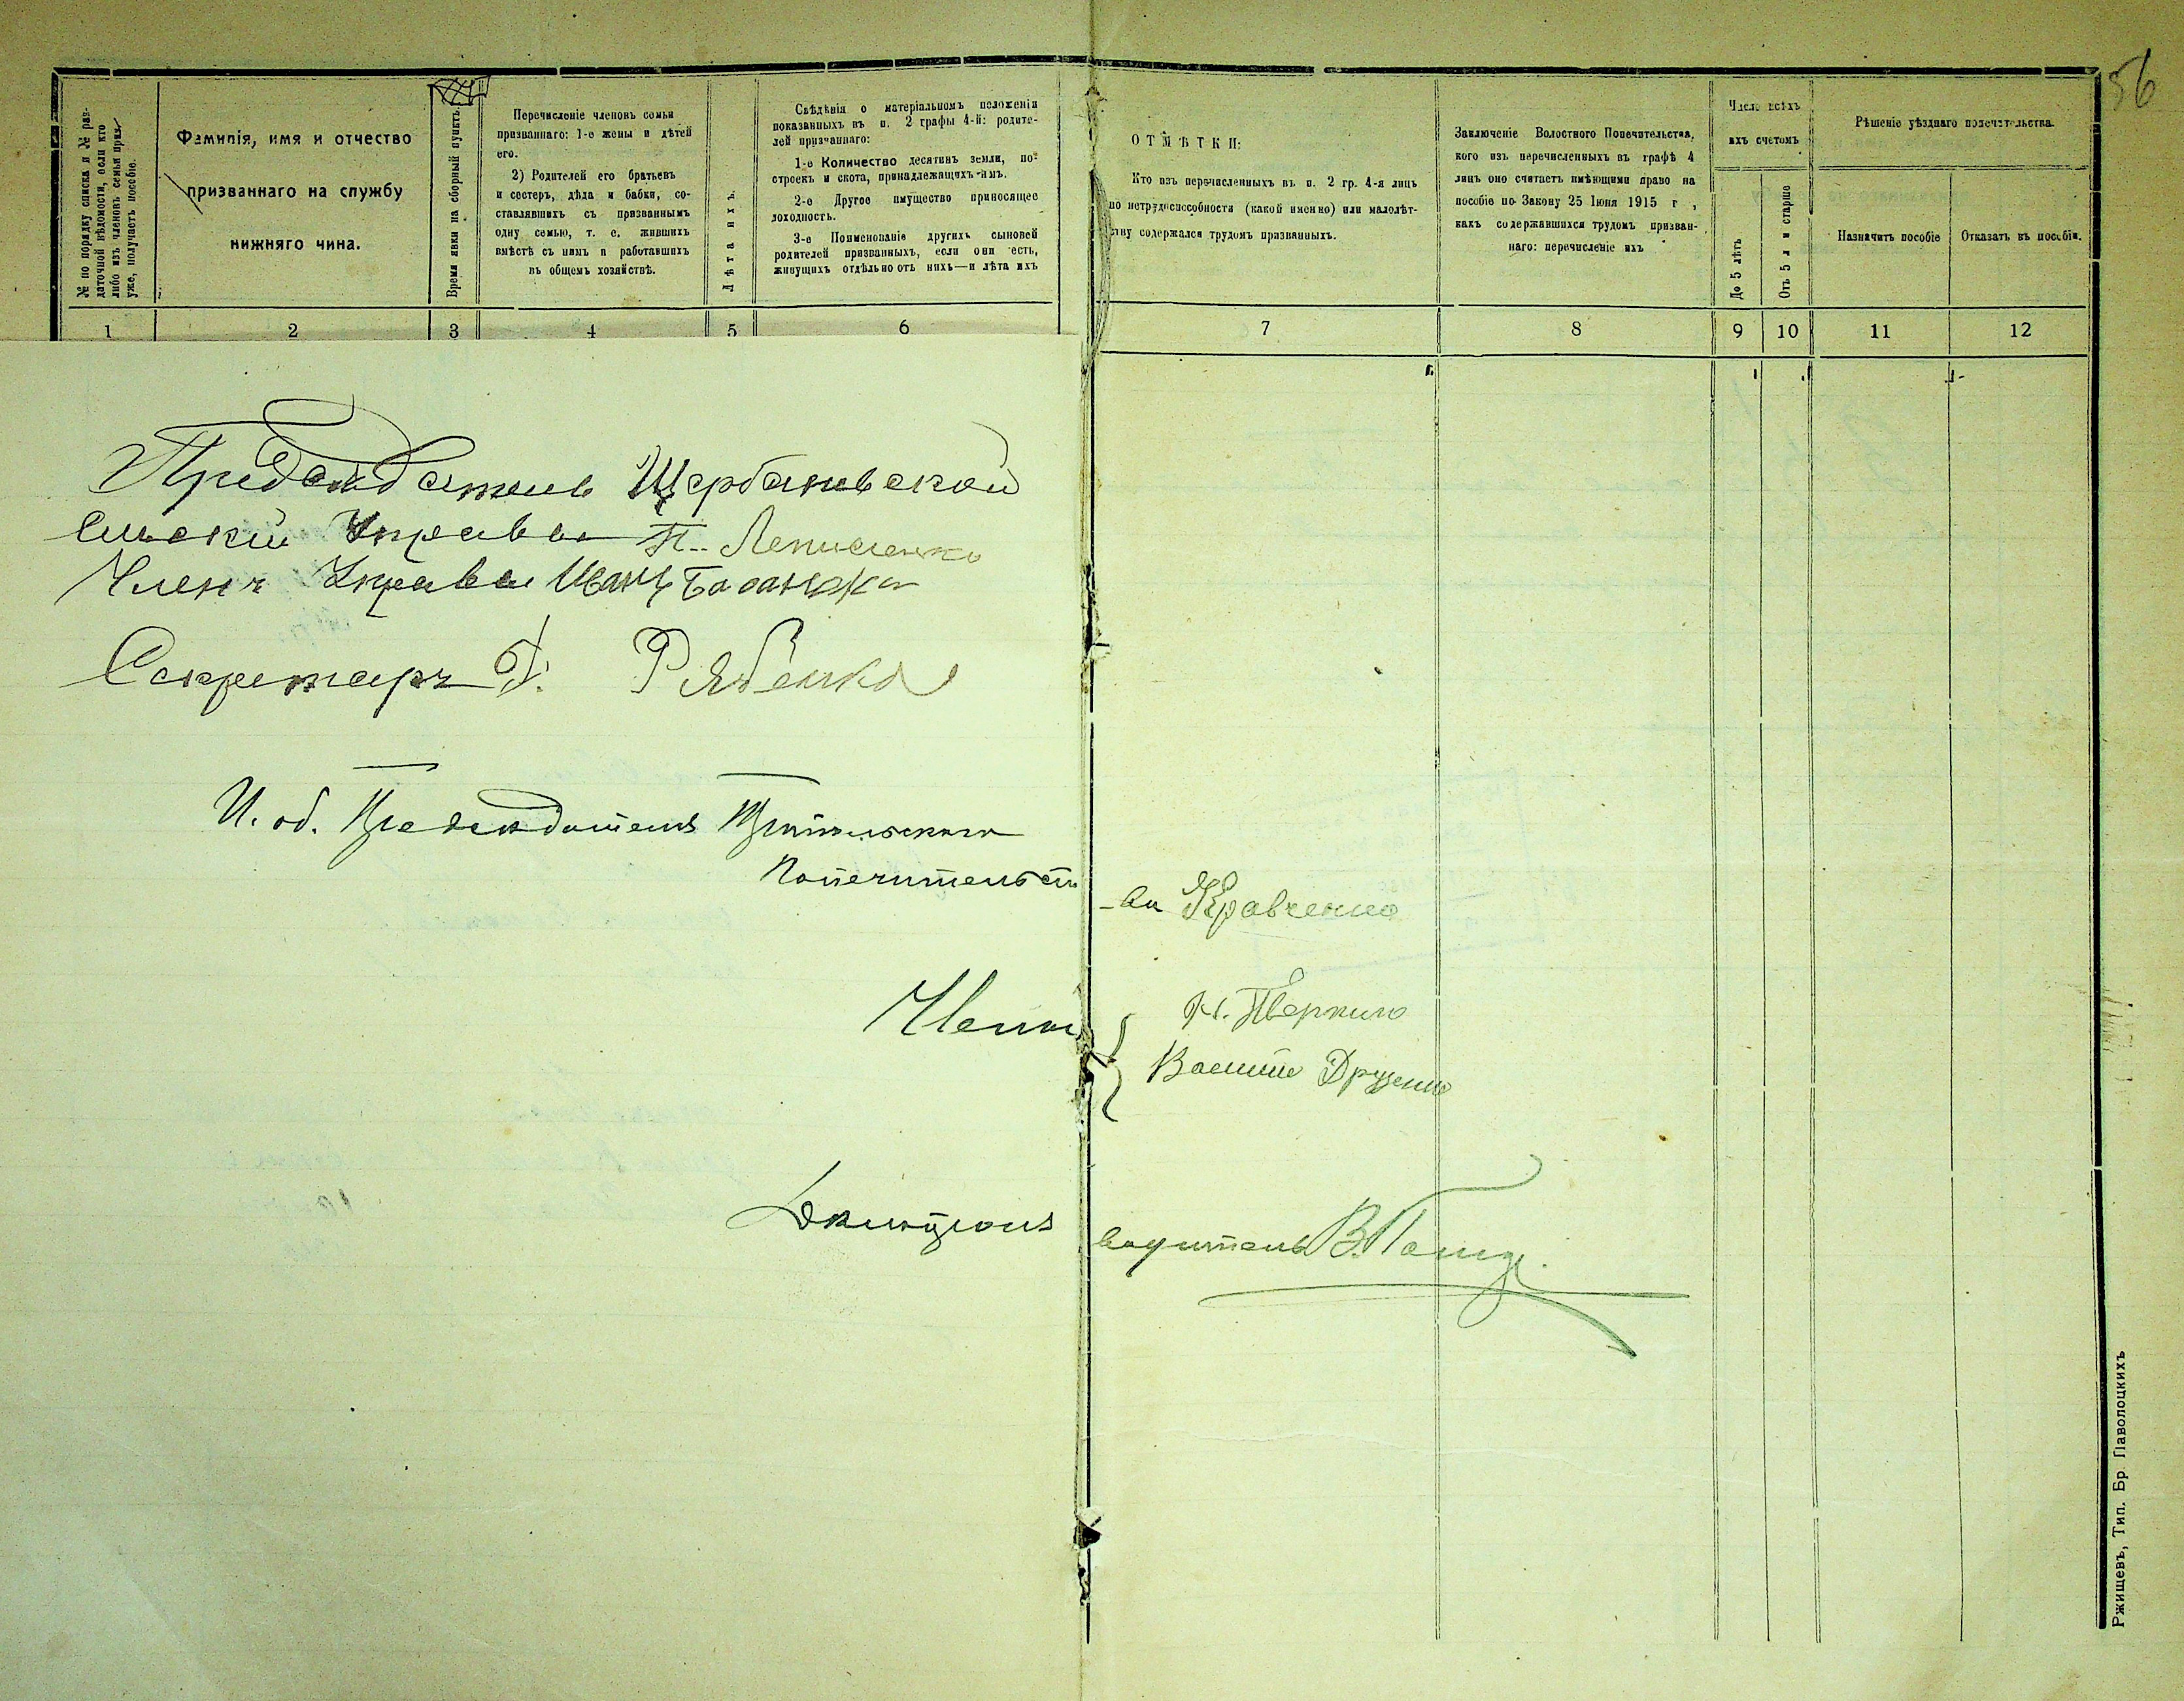 56
№ по порядку списка и № раз-
даточной вѣдомости, если кто
либо изъ членовъ семьи приз.
уже, получаетъ пособіе.
Фамилія, имя и отчество
призваннаго на службу
нижняго чина.
Время явки на сборный пунктъ.
Перечисленіе членовъ семьи
призваннаго: 1-е жены и дѣтей
его.
2) Родителей его братьевъ
и сестеръ, дѣда и бабки, со-
ставлявшихъ съ призваннымъ
одну семью, т. е. жившихъ
вмѣстѣ съ нимъ и работавшихъ
въ общемъ хозяйствѣ.
Лѣта ихъ.
Свѣдѣнія о матеріальномъ положеніи
показанныхъ въ п. 2 графы 4-й: родите-
лей призваннаго:
1-е Количество десятинъ земли, по-
строекъ и скота, принадлежащихъ имъ.
2-е Другое имущество приносящее
доходность.
3-е Поименованіе другихъ сыновей
родителей призванныхъ, если они есть,
живущихъ отдѣльно отъ нихъ—и лѣта ихъ
ОТМѢТКИ:
Кто изъ перечисленныхъ въ п. 2 гр. 4-я лицъ
по нетрудоспособности (какой именно) или малолѣт-
ству содержался трудомъ призванныхъ.
Заключеніе Волостного Попечительства,
кого изъ перечисленныхъ въ графѣ 4
лицъ оно считаетъ имѣющими право на
пособіе по Закону 25 Іюня 1915 г,
какъ содержавшихся трудомъ призван-
наго: перечисленіе ихъ
Число всѣхъ
ихъ счетомъ
До 5 лѣтъ
Отъ 5 л и старше
Рѣшеніе уѣзднаго попечительства.
Назначить пособіе
Отказать въ пособіи.
1 2 3 4 5 6 7 8 9 10 11 12
Предсѣдатель Щербаневской
Сельской Управы П.
Членъ Управы Иванъ
Секретарь Рябенко
И. об. Предсѣдателя
Попечительст
-ва Кравченко
Члены
Н.
Василь Друзенко
Дѣлопроиз
водитель В.
Ржищевъ, Тип. Бр. Паволоцкихъ